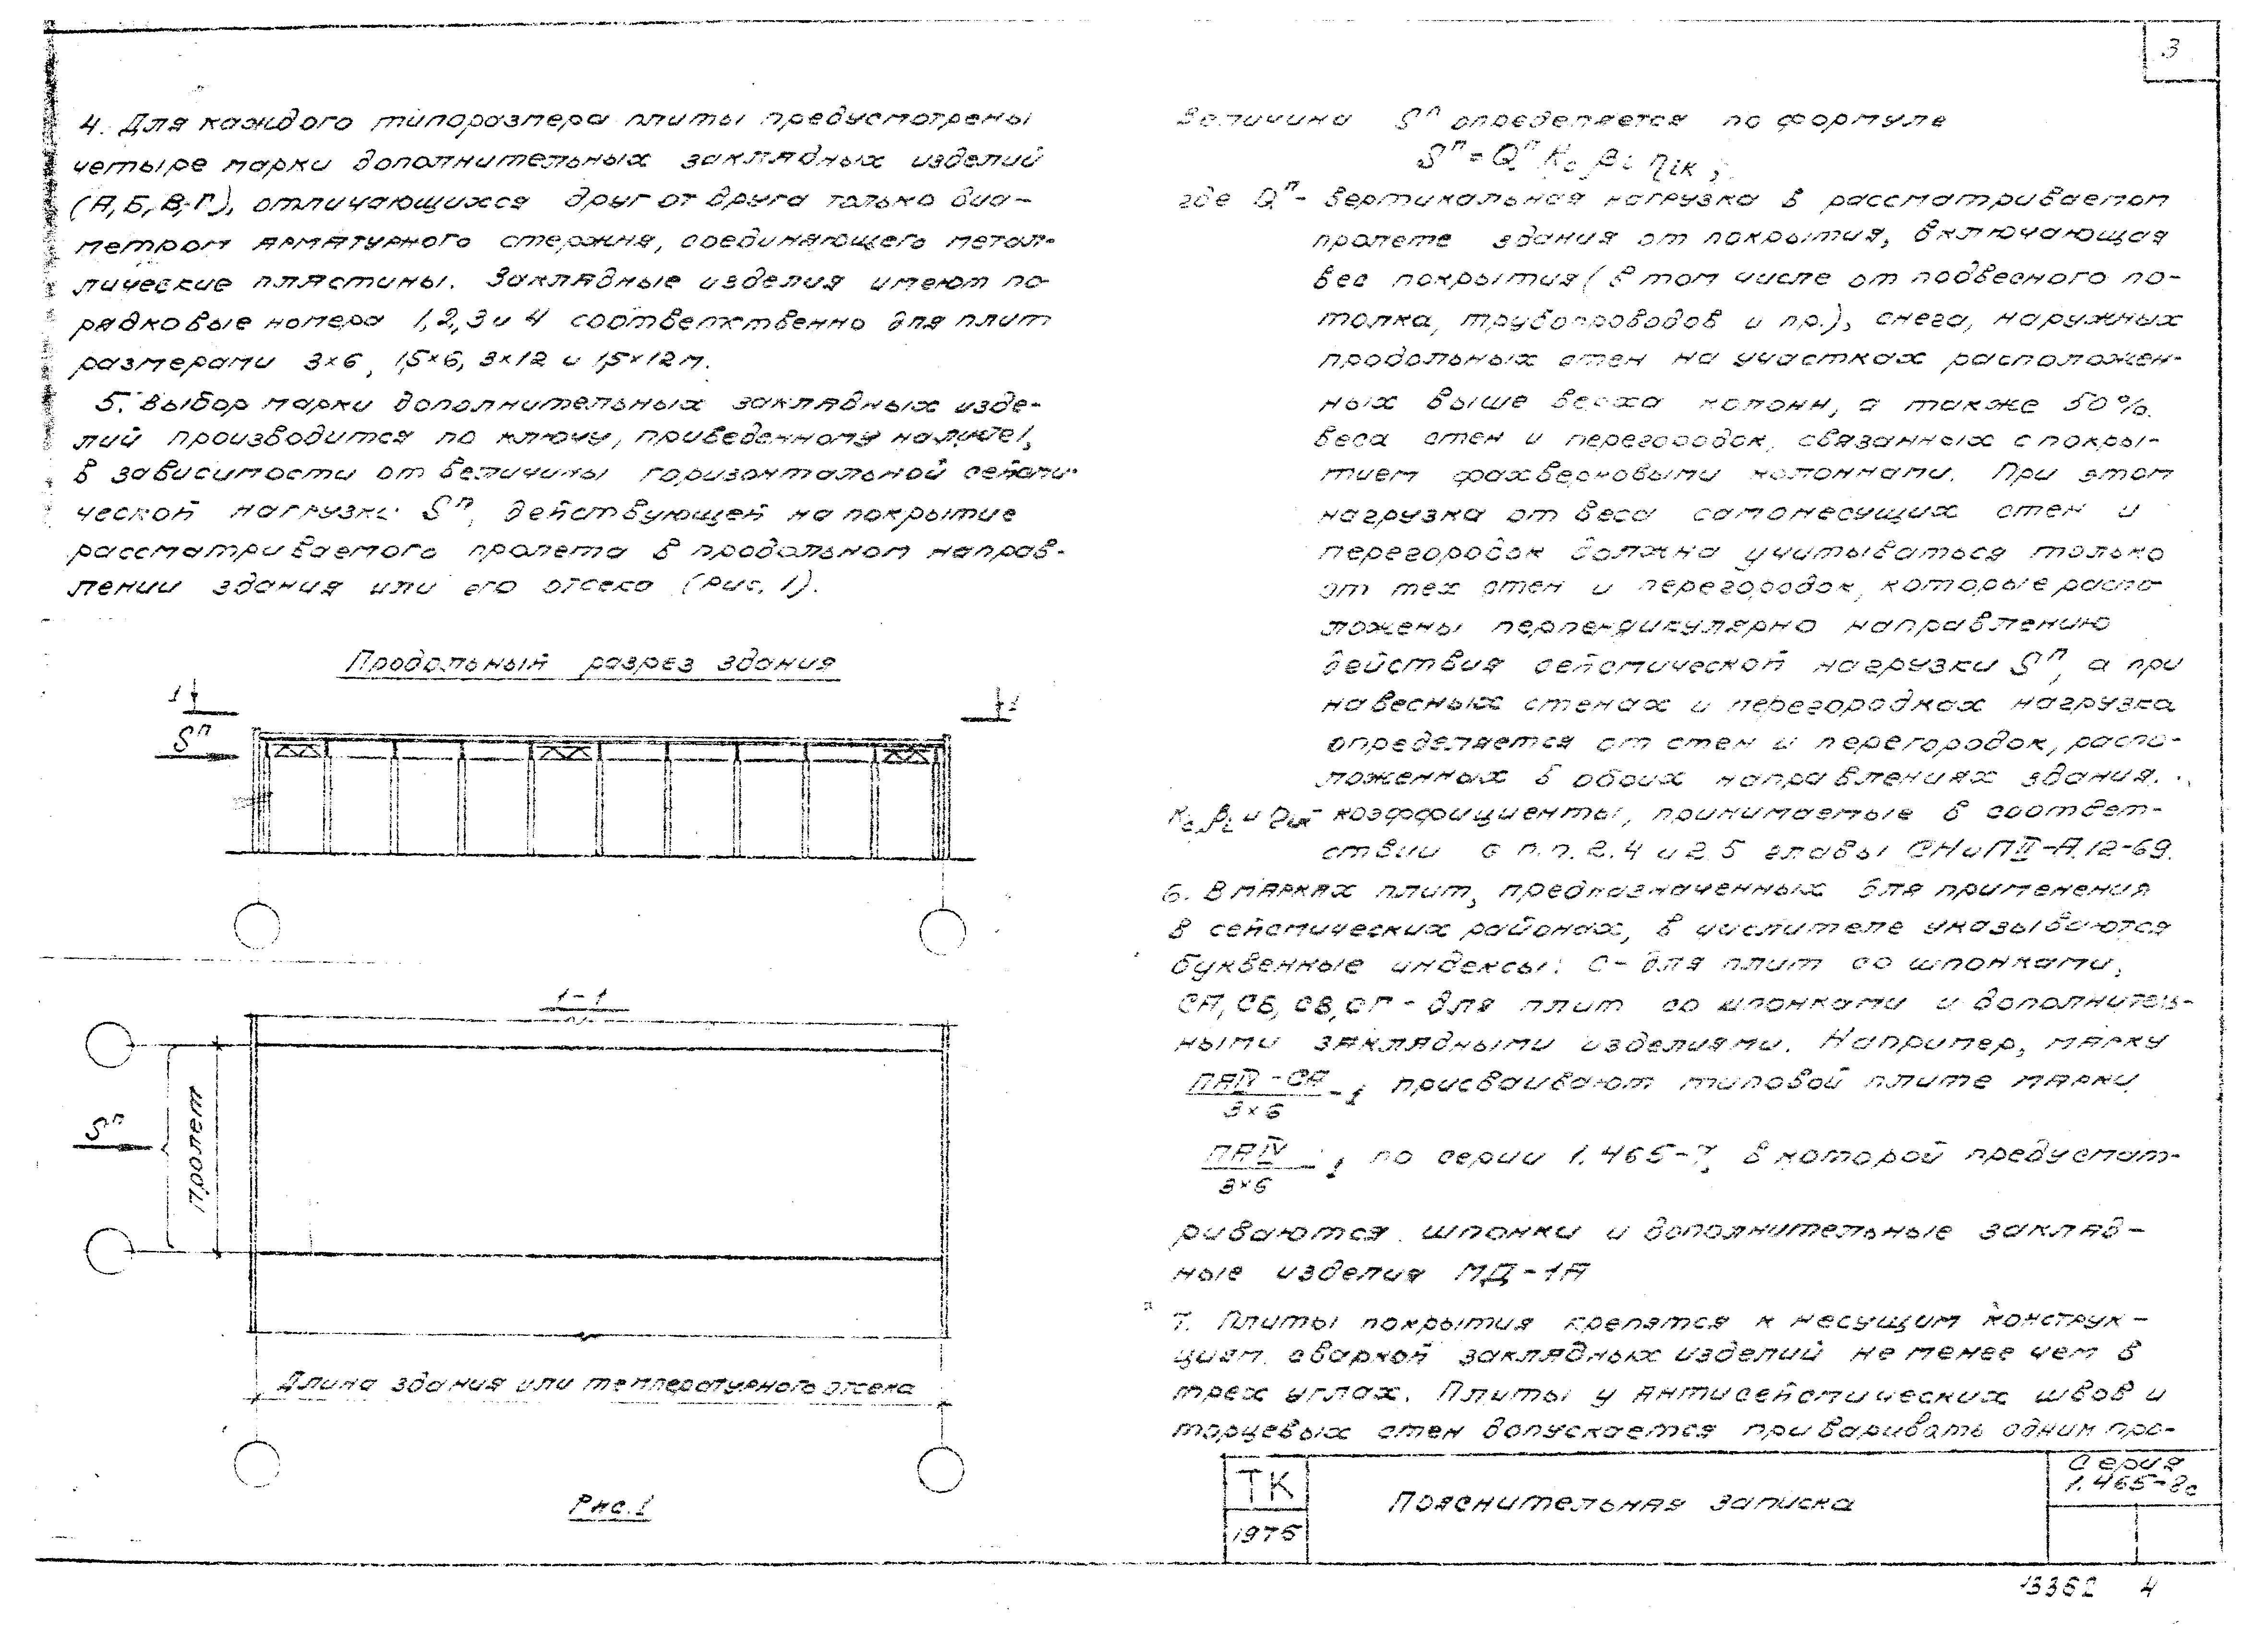 3
4. Для каждого типоразмера плиты предусмотрены
четыре марки дополнительных закладных изделий
(А, Б, В, Г), отличающихся друг от друга только диа-
метром арматурного стержня, соединяющего метал-
лические пластины. Закладные изделия имеют по-
рядковые номера 1, 2, 3 и 4 соответственно для плит
размерами 3×6, 1,5×6, 3×12 и 1,5×12 м.
5. Выбор марки дополнительных закладных изде-
лий производится по ключу, приведенному на листе 1,
в зависимости от величины горизонтальной сейсми-
ческой нагрузки Sⁿ, действующей на покрытие
рассматриваемого пролета в продольном направ-
лении здания или его отсека (рис. 1).
Продольный разрез здания
1 1
Sⁿ
1-1
Sⁿ
пролет
Длина здания или температурного отсека
Рис. 1
Величина Sⁿ определяется по формуле
Sⁿ = Qⁿ Kc βi ηiк ;
где Qⁿ - вертикальная нагрузка в рассматриваемом
пролете здания от покрытия, включающая
вес покрытия (в том числе от подвесного по-
толка, трубопроводов и пр.), снега, наружных
продольных стен на участках расположен-
ных выше верха колонн, а также 50%
веса стен и перегородок, связанных с покры-
тием фахверковыми колоннами. При этом
нагрузка от веса самонесущих стен и
перегородок должна учитываться только
от тех стен и перегородок, которые распо-
ложены перпендикулярно направлению
действия сейсмической нагрузки Sⁿ, а при
навесных стенах и перегородках нагрузка
определяется от стен и перегородок, распо-
ложенных в обоих направлениях здания.
Kc, βi и ηiк - коэффициенты, принимаемые в соответ-
ствии с п.п. 2.4 и 2.5 главы СНиП II-А.12-69.
6. В марках плит, предназначенных для применения
в сейсмических районах, в числителе указываются
буквенные индексы: С - для плит со шпонками,
СА, СБ, СВ, СГ - для плит со шпонками и дополнитель-
ными закладными изделиями. Например, марку
ПАIV-СА/3×6 - 1 присваивают типовой плите марки
ПАIV/3×6 - 1 по серии 1.465-7, в которой предусмат-
риваются шпонки и дополнительные заклад-
ные изделия МД-1А
7. Плиты покрытия крепятся к несущим конструк-
циям сваркой закладных изделий не менее чем в
трех углах. Плиты у антисейсмических швов и
торцевых стен допускается приваривать одним про-
ТК
1975
Пояснительная записка
Серия
1.465-8с
13362 4